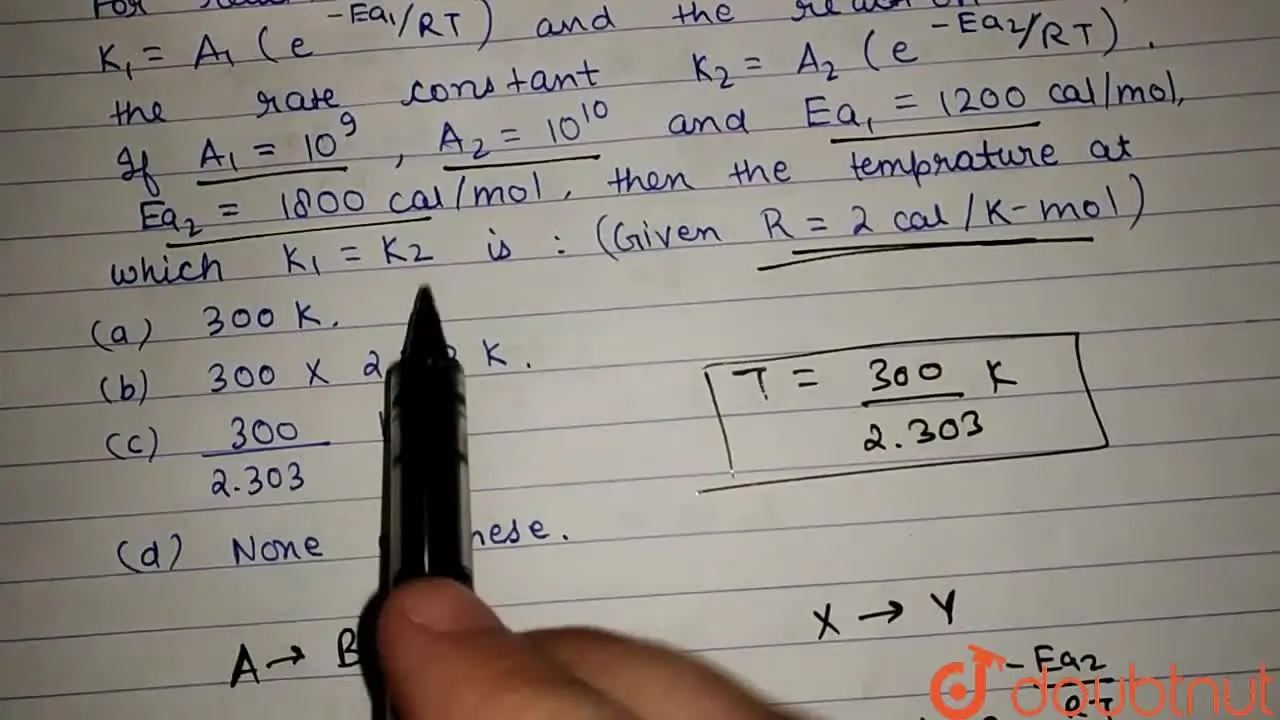 For
K₁ = A₁ (e^-Ea₁/RT) and the
the rate constant K₂ = A₂ (e^-Ea₂/RT).
If A₁ = 10⁹, A₂ = 10¹⁰ and Ea₁ = 1200 cal/mol,
Ea₂ = 1800 cal/mol, then the temprature at
which K₁ = K₂ is : (Given R = 2 cal/K-mol)
(a) 300 K.
(b) 300 X 2 K.
(c) 300
2.303
T = 300/2.303 K
(d) None
A → B
X → Y
-Ea₂
RT
doubtnut